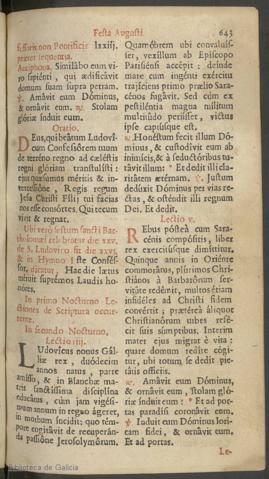 Festa Augusti. 643
fessoris non Pontificis lxxij.
præter sequentia.
Antiphona. Similábo eum vi-
ro sapiénti, qui ædificávit
domum suam supra petram.
℣. Amávit eum Dóminus,
& ornávit eum. ℟. Stolam
glóriæ índuit eum.
Oratio.
Deus, qui beátum Ludoví-
cum Confessórem tuum
de terréno regno ad cæléstis
regni glóriam transtulísti:
ejus quǽsumus méritis & in-
tercessióne, Regis regum
Jesu Christi Fílii tui fácias
nos esse consórtes. Qui tecum
vivit & regnat.
Ubi verò festum sancti Bar-
de S. Ludovico fit die xxvj.
& in Hymno Iste Confés-
sor, dicitur, Hac die lætus
méruit suprémos Laudis ho-
nóres.
In primo Nocturno Le-
ctiones de Scriptura occur-
rente.
In secundo Nocturno,
Lectio iiij.
Ludovícus nonus Gál-
liæ rex, duódecim
annos natus, patre
amísso, & in Blanchæ ma-
tris sanctíssima disciplína
educátus, cùm jam vigési-
mum annum in regno ágeret,
in morbum íncidit: quo tém-
pore cogitávit de recuperán-
da possessióne Jerosolymórum.
Quamobrem ubi convaluís-
set, vexíllum ab Epíscopo
Parisiénsi accépit: deinde
mare cum ingénti exércitu
trajíciens primo prǽlio Sara-
cénos fugávit. Sed cùm ex
pestiléntia magna mílitum
multitúdo perísset, victus
ipse captúsque est.
℟. Honéstum fecit illum Dó-
minus, & custodívit eum ab
inimícis, & à seductóribus tu-
távit illum: * Et dedit illi cla-
ritátem ætérnam. ℣. Justum
dedúxit Dóminus per vias re-
ctas, & osténdit illi regnum
Dei. Et dedit.
Lectio v.
Rebus pósteà cum Sara-
cénis compósitis, liber
rex exercitúsque dimíttitur.
Quinque annis in Oriénte
commorátus, plúrimos Chri-
stiános à Barbarórum ser-
vitúte redémit, multos étiam
infidéles ad Christi fidem
convértit; prætéreà áliquot
Christianórum urbes refé-
cit suis súmptibus. Interim
mater ejus migrat è vita:
quare domum redíre cógi-
tur, ubi totum se dedit pie-
tátis offíciis.
℟. Amávit eum Dóminus,
& ornávit eum, stolam gló-
riæ índuit eum: * Et ad por-
tas paradísi coronávit eum.
℣. Induit eum Dóminus lorí-
cam fídei, & ornávit eum.
Et ad portas.
Le-
Biblioteca de Galicia